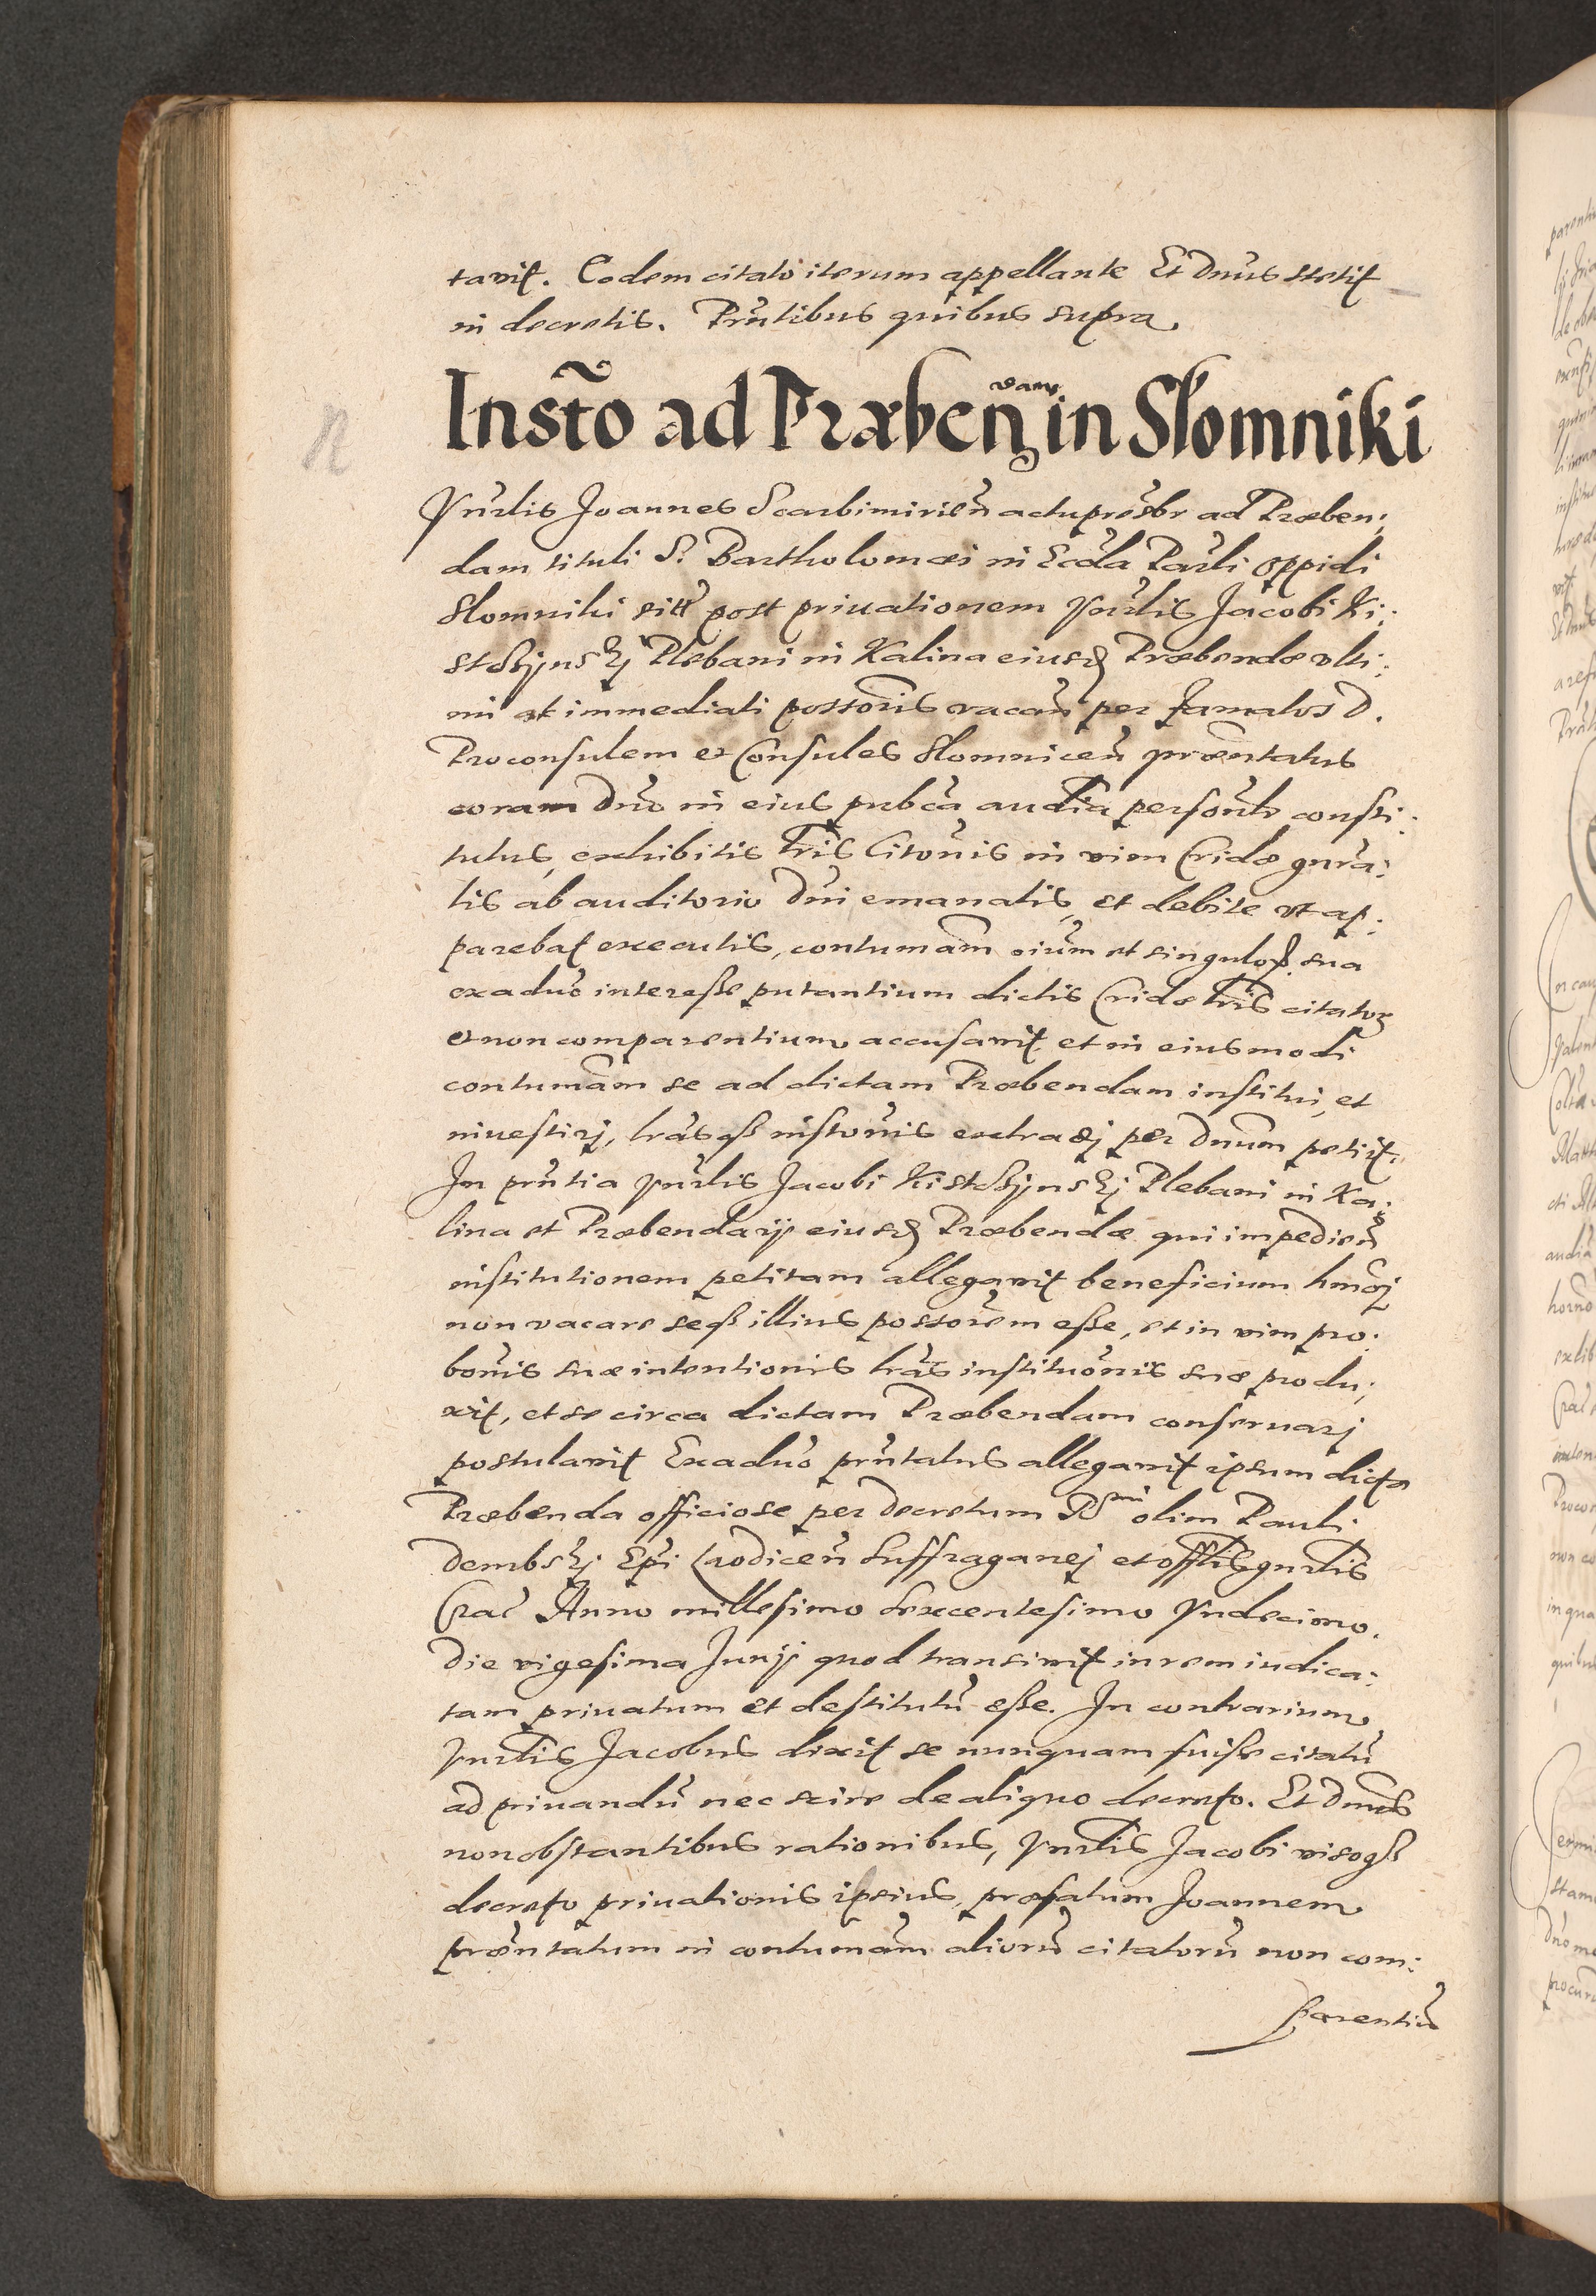 tavit. Eodem citato iterum appellante Et Dnus stetit
in decretis. Prntibus quibus supra.
Insto ad Præben dam in Slomniki
n
Vnrlis Joannes Scarbimirien actu presbr ad Præben:
dam tituli S. Bartholomæi in Eccla Parli oppidi
Slomniki sitt post priuationem Vnrlis Jacobi Ki:
Plebani in Kalina eiusd Præbendæ vlti:
mi et immediati possoris vacan per famatos D.
Proconsulem et Consules Slomnicen præntatus
coram Dno in eius pubca audia personlr consti:
tutus, exhibitis lris Citonis in vim Cridæ gnra:
lis ab auditorio Dni emanatis, et debite vt ap:
parebat executis, contumam oium et singulor sua
exaduo interesse putantium dictis Cridæ lris citator
et non comparentium accusavit et in eiusmodi
contumam se ad dictam Præbendam institui, et
inuestirj, lrasq instonis extradj per Dnum petijt.
In prntia Vnrlis Jacobi Plebani in Ka:
lina et Præbendarij eiusd Præbendæ qui impedien
institutionem petitam allegavit beneficium hmoj
non vacare seq illius possorem esse, et in vim pro:
bonis suæ intentionis lras instituonis suæ produ:
xit, et se circa dictam Præbendam conseruarj
postulavit Exaduo prntatus allegavit ipsum dicta
Præbenda officiose per decretum Rsmi olim Pauli
Dembskj Epi Laodicen Suffraganej et offlis gnrlis
Crac Anno millesimo sexcentesimo Vndecimo.
Die vigesima Junij quod transivit in rem iudica:
tam priuatum et destitutu esse. In contrarium
Vnrlis Jacobus dixit se nunquam fuisse citatu
ad priuandu nec scire de aliquo decreto. Et Dnus
non obstantibus rationibus, Vnrlis Jacobi visoq
decreto priuationis ipsius, præfatum Joannem
præntatum in contumam alioru citatoru non com:
parentiu